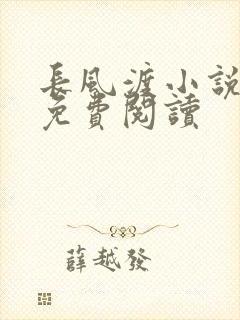 長風渡小説
免費閱讀
薛越發